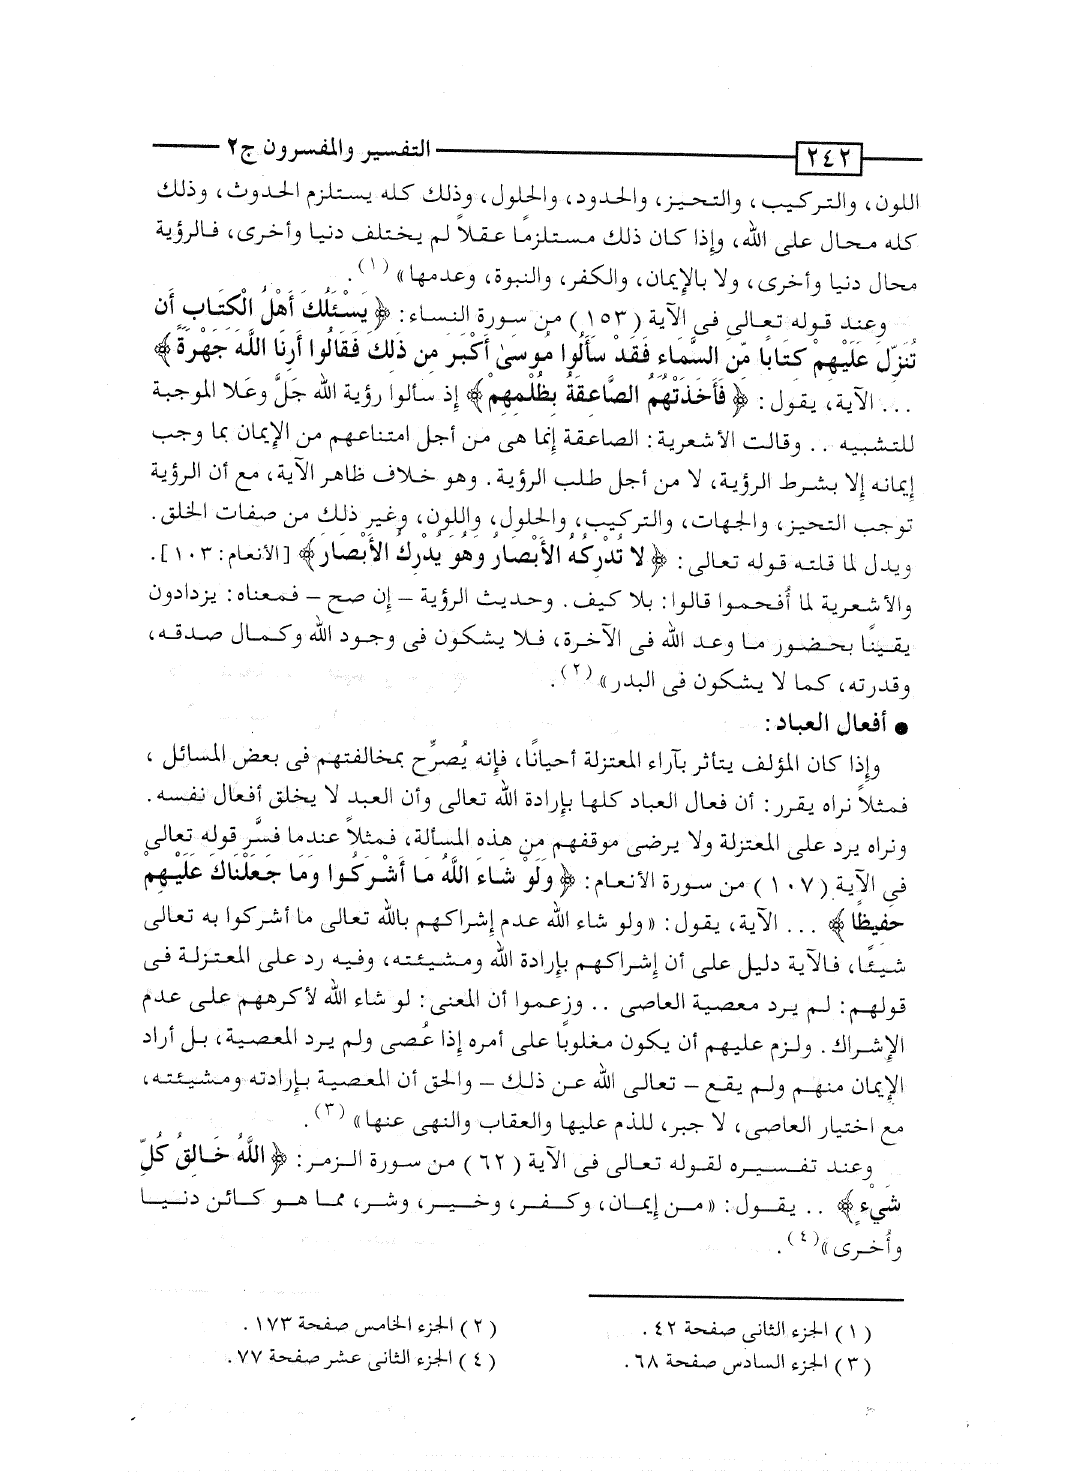 ٢٤٢ التفسير والمفسرون ج٢
اللون، والتركيب، والتحيز، والحدود، والحلول، وذلك كله يستلزم الحدوث، وذلك
كله محال على الله، وإذا كان ذلك مستلزمًا عقلاً لم يختلف دنيا وأخرى، فالرؤية
محال دنيا وأخرى، ولا بالإيمان، والكفر، والنبوة، وعدمها» (١).
وعند قوله تعالى فى الآية (١٥٣) من سورة النساء: ﴿يَسْئَلُكَ أَهْلُ الْكِتَابِ أَن
تُنَزِّلَ عَلَيْهِمْ كِتَابًا مِّنَ السَّمَاءِ فَقَدْ سَأَلُوا مُوسَىٰ أَكْبَرَ مِن ذَلِكَ فَقَالُوا أَرِنَا اللَّهَ جَهْرَةً﴾
... الآية، يقول: ﴿فَأَخَذَتْهُمُ الصَّاعِقَةُ بِظُلْمِهِمْ﴾ إذ سألوا رؤية الله جلَّ وعَلا الموجبة
للتشبيه .. وقالت الأشعرية: الصاعقة إنما هى من أجل امتناعهم من الإيمان بما وجب
إيمانه إلا بشرط الرؤية، لا من أجل طلب الرؤية. وهو خلاف ظاهر الآية، مع أن الرؤية
توجب التحيز، والجهات، والتركيب، والحلول، واللون، وغير ذلك من صفات الخلق.
ويدل لما قلته قوله تعالى: ﴿لا تُدْرِكُهُ الأَبْصَارُ وَهُوَ يُدْرِكُ الأَبْصَارَ﴾ [الأنعام: ١٠٣].
والأشعرية لما أُفحموا قالوا: بلا كيف. وحديث الرؤية – إن صح – فمعناه: يزدادون
يقينًا بحضور ما وعد الله فى الآخرة، فلا يشكون فى وجود الله وكمال صدقه،
وقدرته، كما لا يشكون فى البدر» (٢).
● أفعال العباد:
وإذا كان المؤلف يتأثر بآراء المعتزلة أحيانًا، فإنه يُصرِّح بمخالفتهم فى بعض المسائل ،
فمثلاً نراه يقرر: أن فعال العباد كلها بإرادة الله تعالى وأن العبد لا يخلق أفعال نفسه.
ونراه يرد على المعتزلة ولا يرضى موقفهم من هذه المسألة، فمثلاً عندما فسَّر قوله تعالى
فى الآية (١٠٧) من سورة الأنعام: ﴿وَلَوْ شَاءَ اللَّهُ مَا أَشْرَكُوا وَمَا جَعَلْنَاكَ عَلَيْهِمْ
حَفِيظًا﴾ ... الآية، يقول: «ولو شاء الله عدم إشراكهم بالله تعالى ما أشركوا به تعالى
شيئًا، فالآية دليل على أن إشراكهم بإرادة الله ومشيئته، وفيه رد على المعتزلة فى
قولهم: لم يرد معصية العاصى .. وزعموا أن المعنى: لو شاء الله لأكرههم على عدم
الإشراك. ولزم عليهم أن يكون مغلوبًا على أمره إذا عُصى ولم يرد المعصية، بل أراد
الإيمان منهم ولم يقع – تعالى الله عن ذلك – والحق أن المعصية بإرادته ومشيئته،
مع اختيار العاصى، لا جبر، للذم عليها والعقاب والنهى عنها» (٣).
وعند تفسيره لقوله تعالى فى الآية (٦٢) من سورة الزمر: ﴿اللَّهُ خَالِقُ كُلِّ
شَيْءٍ﴾ .. يقول: «من إيمان، وكفر، وخير، وشر، مما هو كائن دنيا
وأُخرى» (٤).
(١) الجزء الثانى صفحة ٤٢. (٢) الجزء الخامس صفحة ١٧٣.
(٣) الجزء السادس صفحة ٦٨. (٤) الجزء الثانى عشر صفحة ٧٧.